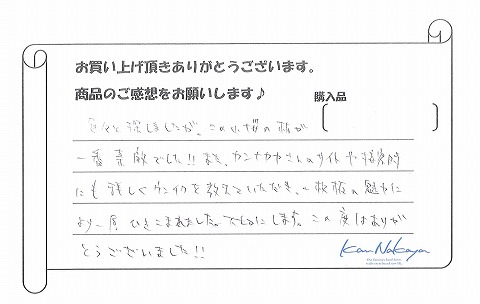 お買い上げ頂きありがとうございます。
商品のご感想をお願いします♪
購入品
色々と探しましたが、この 板が
一番素敵でした!!また、カンナカヤさんのサイトや
にも詳しく を教えていただき、一枚板の魅力に
より一層ひきこまれました。大切にします。この度はありが
とうございました!!
Kan Nakaya